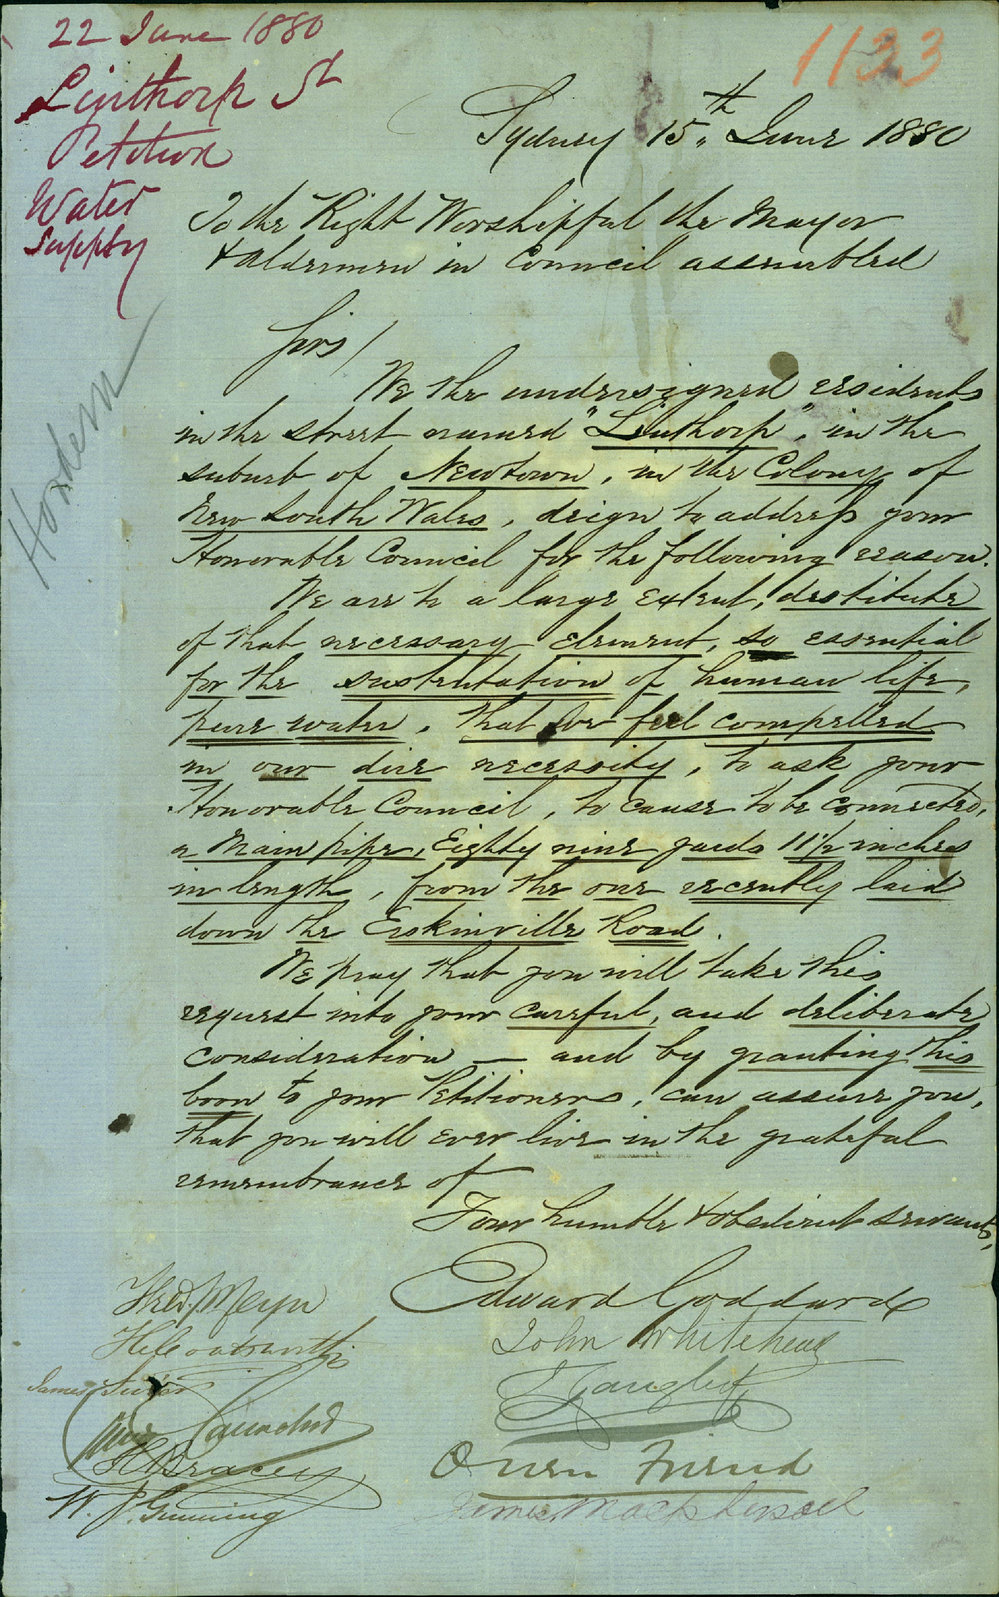 22 June 1880
Linthorp St
Petition
Water
Supply
1133
Hordern
Sydney 15th June 1880
To the Right Worshipful the Mayor
& Aldermen in Council assembled
Sirs/
We the undersigned residents
in the street named "Linthorp", in the
suburb of Newtown, in the Colony of
New South Wales, deign to address your
Honorable Council for the following reason.
We are to a large extent, destitute
of that necessary element, so essential
for the sustentation of human life,
pure water, that we feel compelled
in our dire necessity, to ask your
Honorable Council, to cause to be connected,
a Main pipe, Eighty nine yards 11½ inches
in length, from the one recently laid
down the Erskinville Road.
We pray that you will take this
request into your careful, and deliberate
consideration — and by granting this
boon to your Petitioners, can assure you,
that you will ever live in the grateful
remembrance of
Your humble & obedient servants,
Edward Goddard
John Whitehead
Owen Friend
James
Fred. Meyn
James
H Bracey
W. J. Gunning